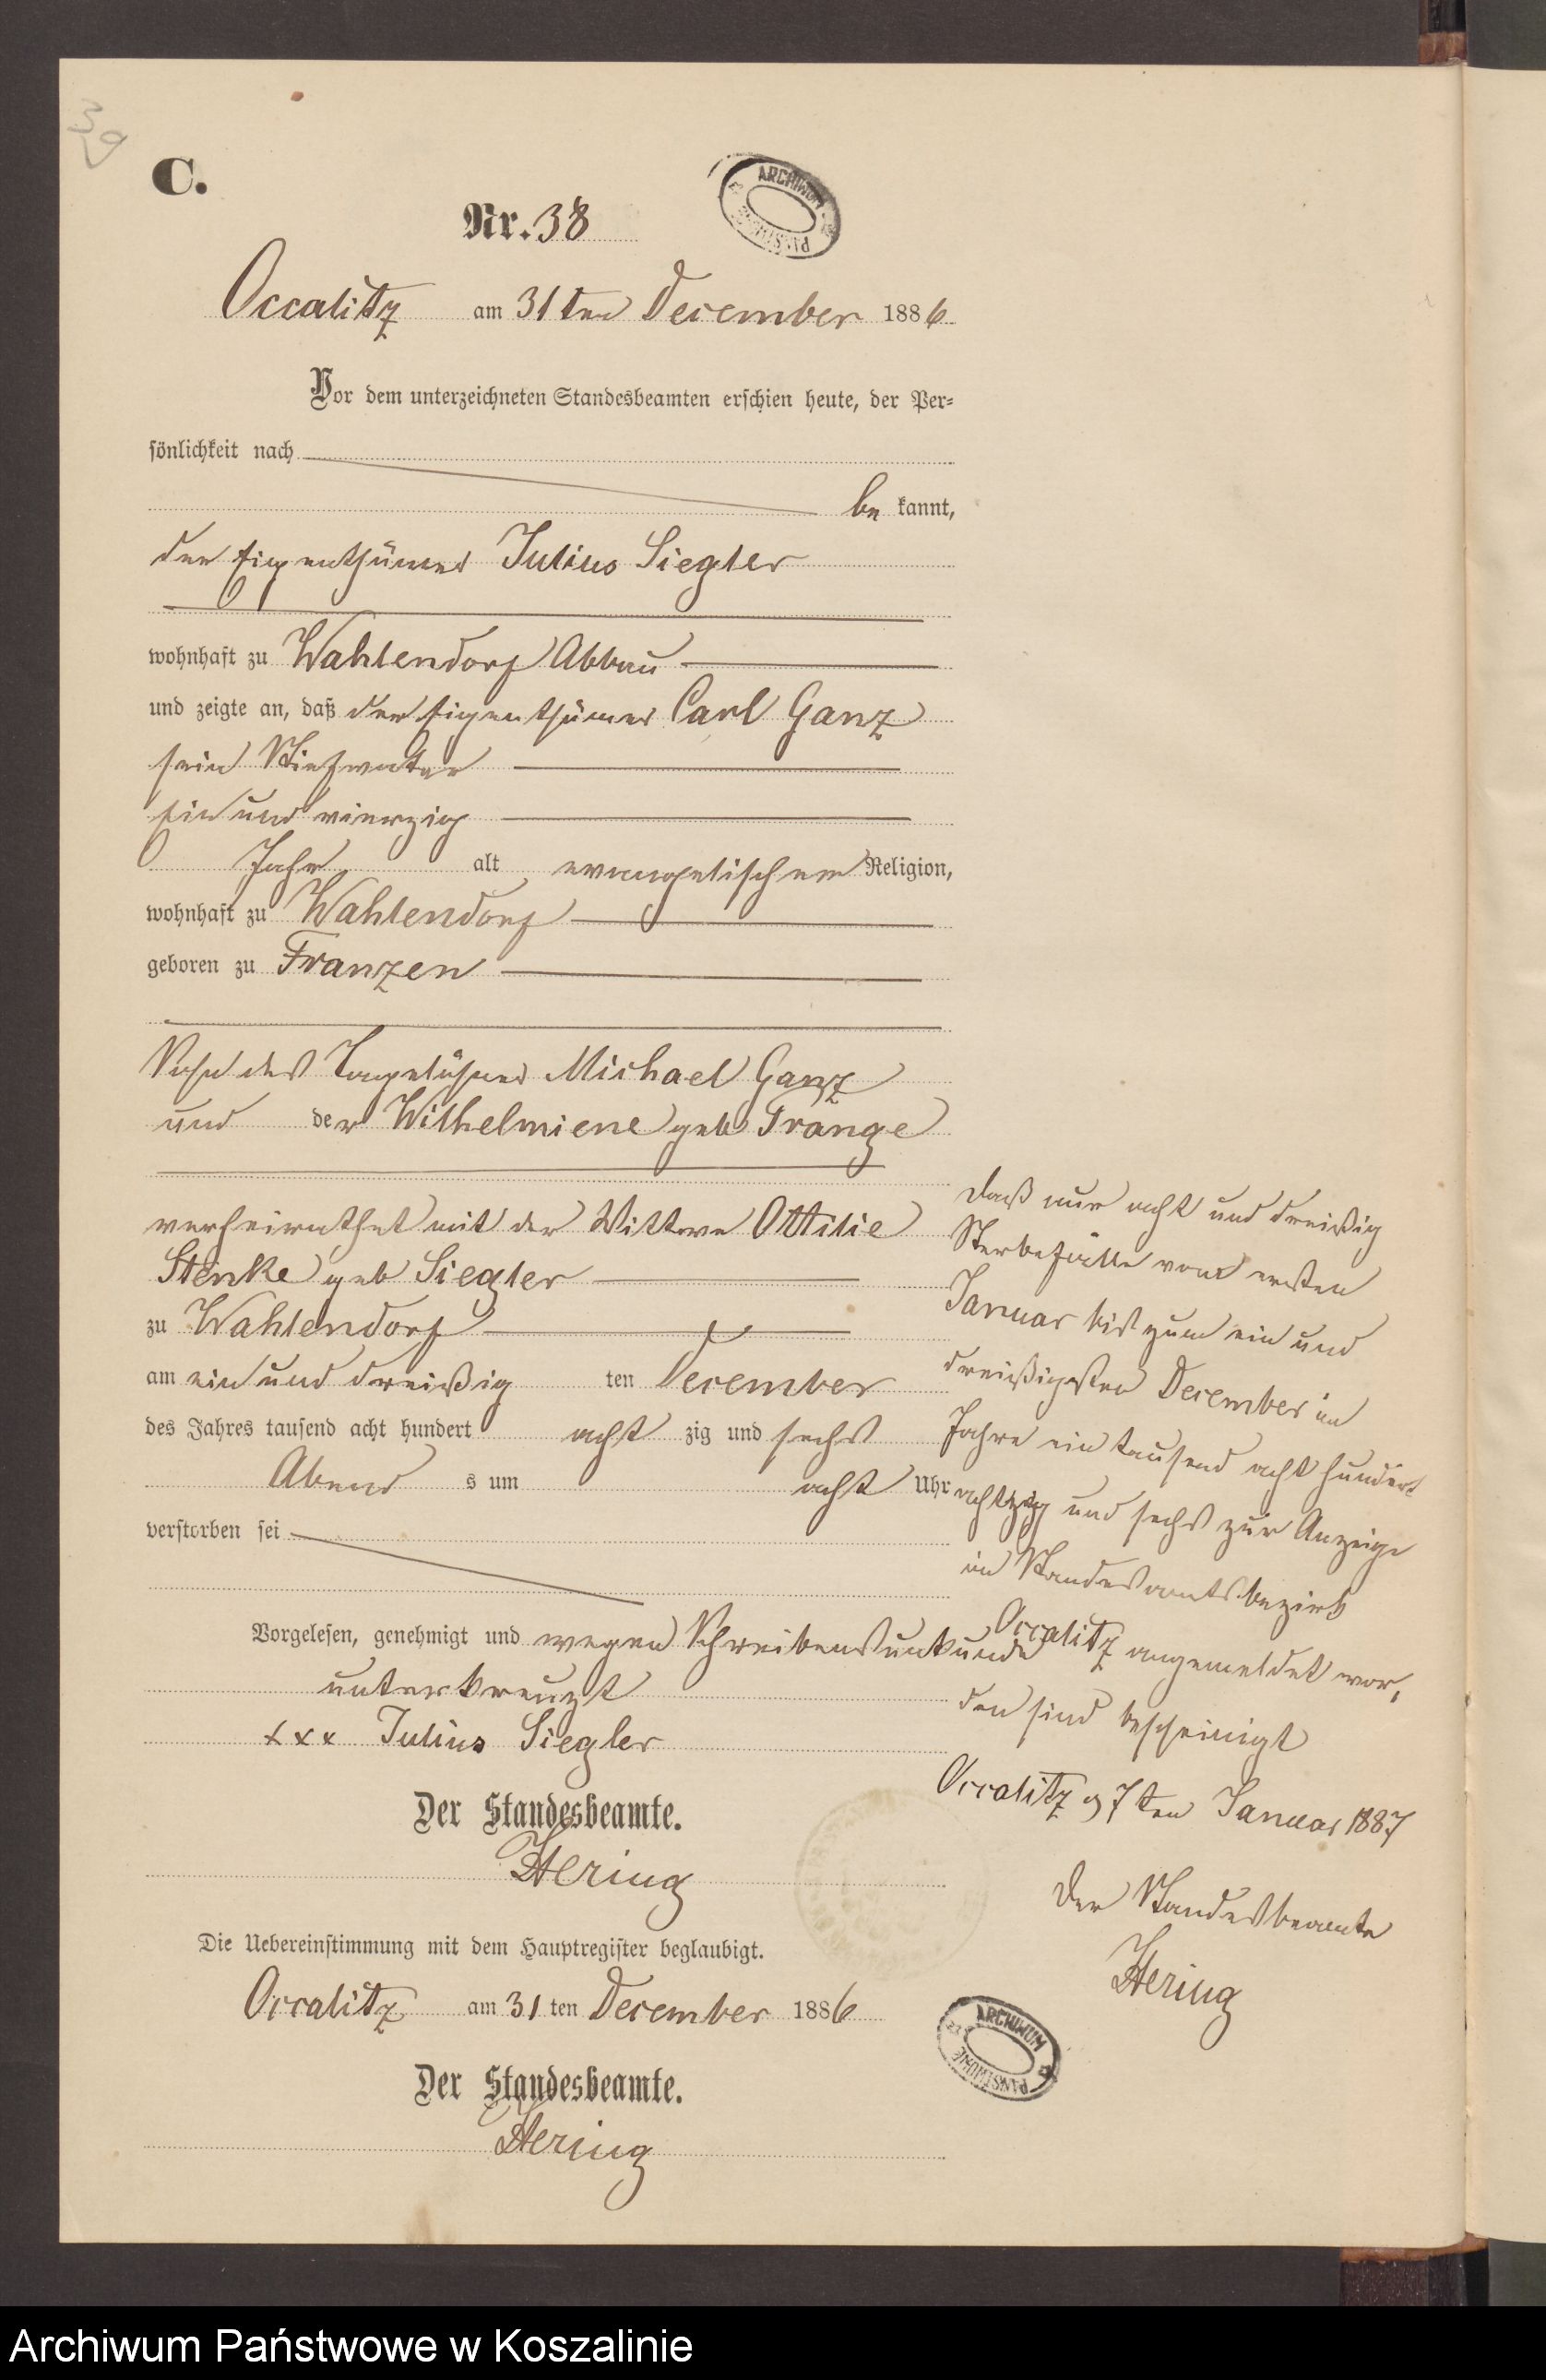 39
C.
Nr. 38
ARCHIWUM PAŃSTWOWE
Occalitz am 31ten December 1886
Vor dem unterzeichneten Standesbeamten erschien heute, der Per-
sönlichkeit nach
be kannt,
der Eigenthümer Julius Siegler
wohnhaft zu Wahlendorf Abbau
und zeigte an, daß der Eigenthümer Carl Ganz
sein Stiefvater
ein und vierzig
Jahr alt evangelischer Religion,
wohnhaft zu Wahlendorf
geboren zu Franzen
Sohn des Tagelöhner Michael Ganz
und der Wilhelmiene geb Trange
verheirathet mit der Wittwe Ottilie
Stenke geb Siegler
zu Wahlendorf
am ein und dreißig ten December
des Jahres tausend acht hundert acht zig und sechs
Abend s um acht Uhr
verstorben sei
Vorgelesen, genehmigt und wegen Schreibensunkunde
unterkreuzt
xxx Julius Siegler
Der Standesbeamte.
Hering
Die Uebereinstimmung mit dem Hauptregister beglaubigt.
Occalitz am 31 ten December 1886
Der Standesbeamte.
Hering
Daß nur acht und dreißig
Sterbefälle vom ersten
Januar bis zum ein und
dreißigsten December im
Jahre ein tausend acht hundert
achtzig und sechs zur Anzeige
im Standesamtsbezirk
Occalitz angemeldet wor,
den sind bescheinigt
Occalitz d 7ten Januar 1887
Der Standesbeamte
Hering
ARCHIWUM PAŃSTWOWE
Archiwum Państwowe w Koszalinie